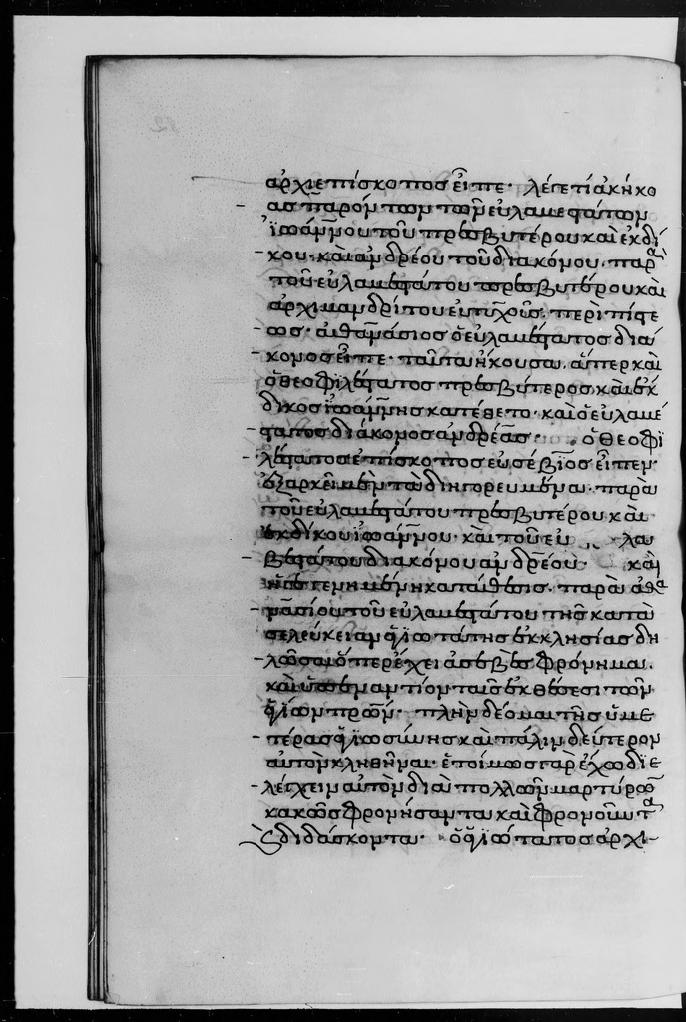 ἀρχιεπίσκοπος εἶπε· λέγε τί ἀκήκο
ας παρὸν τῶν τῶν εὐλαβεστάτων
ἰωάννου τοῦ πρεσβυτέρου καὶ ἐκδί
κου· καὶ ἀνδρέου τοῦ διακόνου. παρὰ
τοῦ εὐλαβεστάτου πρεσβυτέρου καὶ
ἀρχιμανδρίτου εὐτυχοῦς· περὶ πίστε
ως· ἀθανάσιος ὁ εὐλαβέστατος διά
κονος εἶπε· ταῦτα ἤκουσα. ἅπερ καὶ
ὁ θεοφιλέστατος πρεσβύτερος καὶ ἔκ
δικος ἰωάννης κατέθετο· καὶ ὁ εὐλαβέ
στατος διάκονος ἀνδρέας· ὁ θεοφι
λέστατος ἐπίσκοπος εὐσέβιος εἶπεν·
ἐξαρκεῖ μὲν τὰ διηγορευμένα παρὰ
τοῦ εὐλαβεστάτου πρεσβυτέρου καὶ
ἐκδίκου ἰωάννου· καὶ τοῦ εὐ λα
βεστάτου διακόνου ἀνδρέου· καὶ
ἡ γεγενημένη κατάθεσις. παρὰ ἀθα
νασίου τοῦ εὐλαβεστάτου τῆς κατὰ
σελεύκειαν ἁγιωτάτης ἐκκλησίας δη
λῶσαι ὅπερ ἔχει ἀσεβὲς φρόνημα.
καὶ ὑπεναντίον ταῖς ἐκθέσεσι τῶν
ἁγίων πρῶν· πλὴν δέομαι τῆς ὑμε
τέρας ἁγιωσύνης καὶ πάλιν δεύτερον
αὐτὸν κληθῆναι· ἑτοίμως γὰρ ἔχω διε
λέγχειν αὐτὸν διὰ πολλῶν μαρτύρων
κακῶς φρονήσαντα καὶ φρονοῦντα
καὶ διδάσκοντα· ὁ ἁγιώτατος ἀρχι-